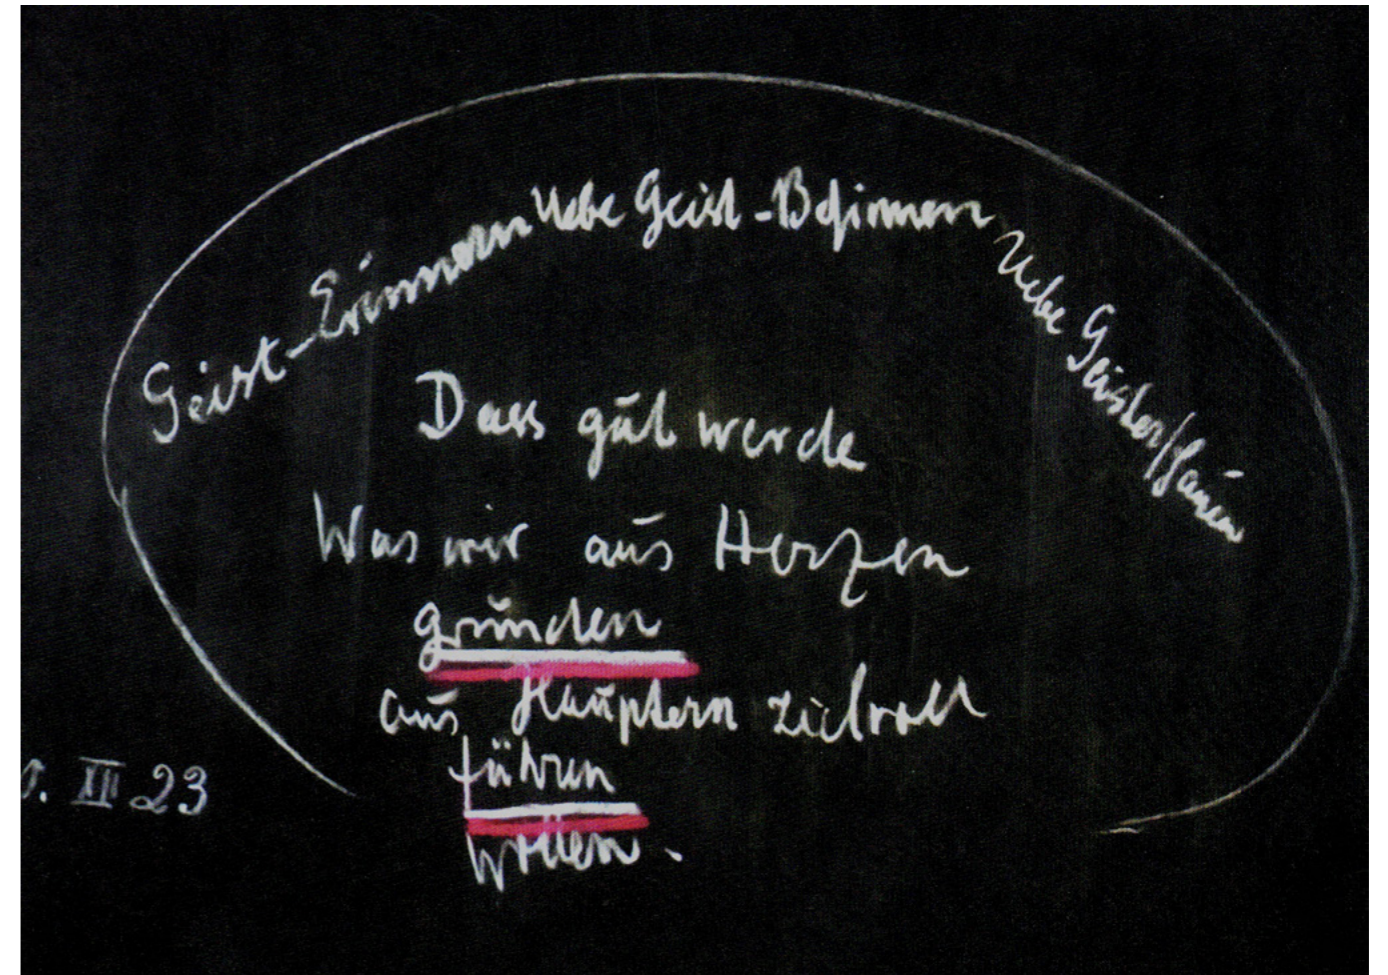 Geist-Erinnern Uebe Geist-Besinnen Uebe Geisterschauen
Dass gut werde
Was wir aus Herzen
gründen
aus Häuptern zielvoll
führen
wollen.
. XII 23